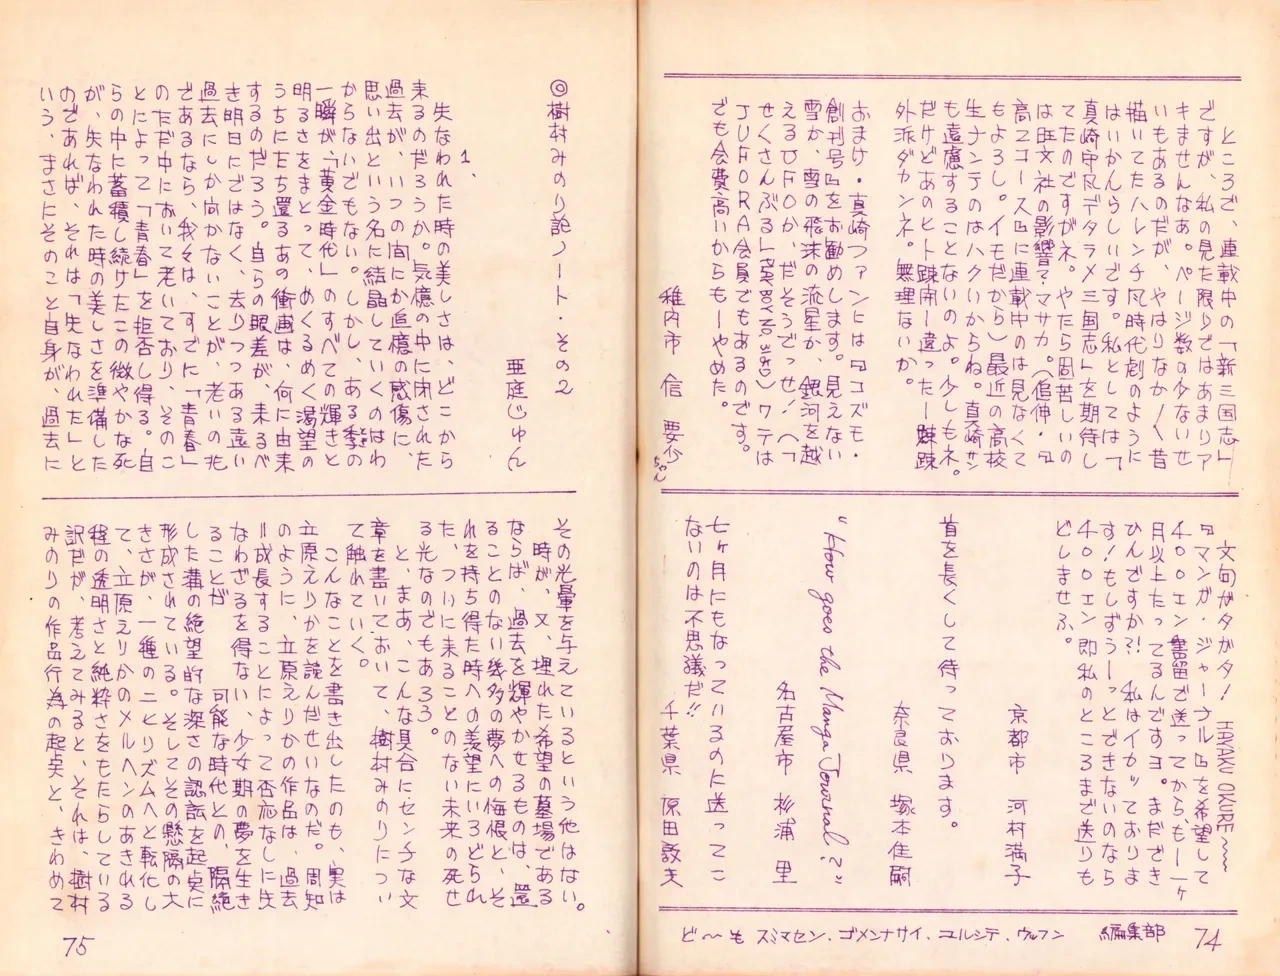 ところで、連載中の「新三国志」
ですが、私の見た限りではあまりア
キませんなあ。ページ数の少ないせ
いもあるのだが、やはりなかなか昔
描いてたハレンチ風時代劇のように
はいかんらしいです。私としては「
真崎守風デタラメ三国志」を期待し
てたのですがネ。やたら周苦しいの
は旺文社の影響?マサカ。(追伸・『
高2コース』に連載中のは見なくて
もよろし。イモだから)最近の高校
生ナンテのはハクいからね。真崎サン
も遠慮することないのよ。少しもネ。
だけどあのヒト疎開ー違ったー疎
外派ダカンネ。無理ないか。
おまけ・真崎ファンには『コズモ・
創刊号』をお勧めします。見えない
雪か、雪の飛沫の流星か、銀河を越
えるUFOか、だそうでっせ!(「
せくさんぶる」)ワテは
JUFORA会員でもあるのです。
でも会費高いからもーやめた。
稚内市 信 要少ちゃん
文句がタがタ! HAYAKU OKURE〜〜
『マンガ・ジャーナル』を希望して
400エン書留で送ってから、も一ヶ
月以上たってるんですヨ。まだざき
ひんですか?! 私はイカッておりま
す!もしずうーっとできないのなら
400エン即私のところまで送りも
どしませふ。
京都市 河村満子
首を長くして待っております。
奈良県 塚本佳嗣
"How goes the Manga Journal?"
名古屋市 杉浦 里
七ヶ月にもなっているのに送ってこ
ないのは不思議だ!!
千葉県 原田敦夫
ど〜も スミマセン、ゴメンナサイ、ユルシテ、ウッフン 編集部 74
◎樹村みのり論ノート・その2
亜庭じゅん
1、
失なわれた時の美しさは、どこから
来るのだろうか。気憶の中に閉された
過去が、いつの間にか追憶の感傷に、
思い出という名に結晶していくのはわ
からないでもない。しかし、ある季の
一瞬が「黄金時代」のすべての輝きと
明るさをまとって、めくるめく渇望の
うちにたち還るあの衝動は、何に由来
するのだろう。自らの眼差が、来るべ
き明日にではなく、去りつつある遠い
過去にしか向かないことが、老いの兆
であるなら、我々は、すでに「青春」
のただ中において老いており、そのこ
とによって「青春」を拒否し得る。自
らの中に蓄積し続けたこの微やかな死
が、失なわれた時の美しさを準備した
のであれば、それは「失なわれた」と
いう、まさにそのこと自身が、過去に
その光暈を与えているという他はない。
時が、又、埋れた希望の墓場である
ならば、過去を輝やかせるものは、還
ることのない幾多の夢への悔恨と、そ
れを持ち得た時への羨望にいろどられ
た、ついに来ることのない未来の死せ
る光なのでもあろう。
と、まあ、こんな具合にセンチな文
章を書いておいて、樹村みのりについ
て触れていく。
こんなことを書き出したのも、実は
立原えりかを読んだせいなのだ。周知
のように、立原えりかの作品は、過去
=成長することによって否応なしに失
なわざるを得ない、少女期の夢を生き
ることが 可能な時代との、隔絶
した溝の絶望的な深さの認識を起点に
形成されている。そしてその懸隔の大
きさが、一種のニヒリズムへと転化し
て、立原えりかのメルヘンのあきれる
程の透明さと純粋さをもたらしている
訳だが、考えてみると、それは、樹村
みのりの作品行為の起点と、きわめて
75